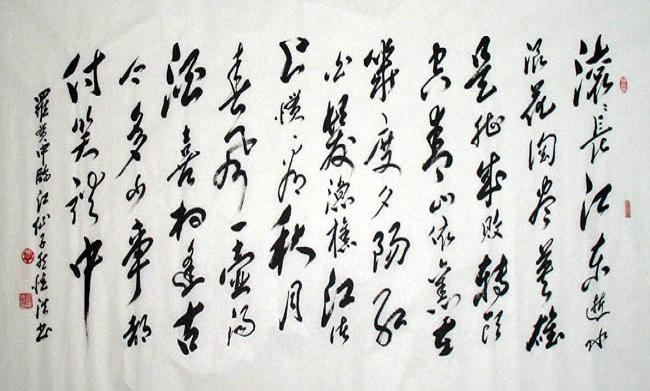 滚〻長江东逝水
浪花淘尽英雄
是非成败轉头
空青山依舊在
幾度夕陽红
白髮渔樵江渚
上惯看秋月
春风一壶濁
酒喜相逢古
今多少事都
付笑谈中
羅贯中臨江仙书